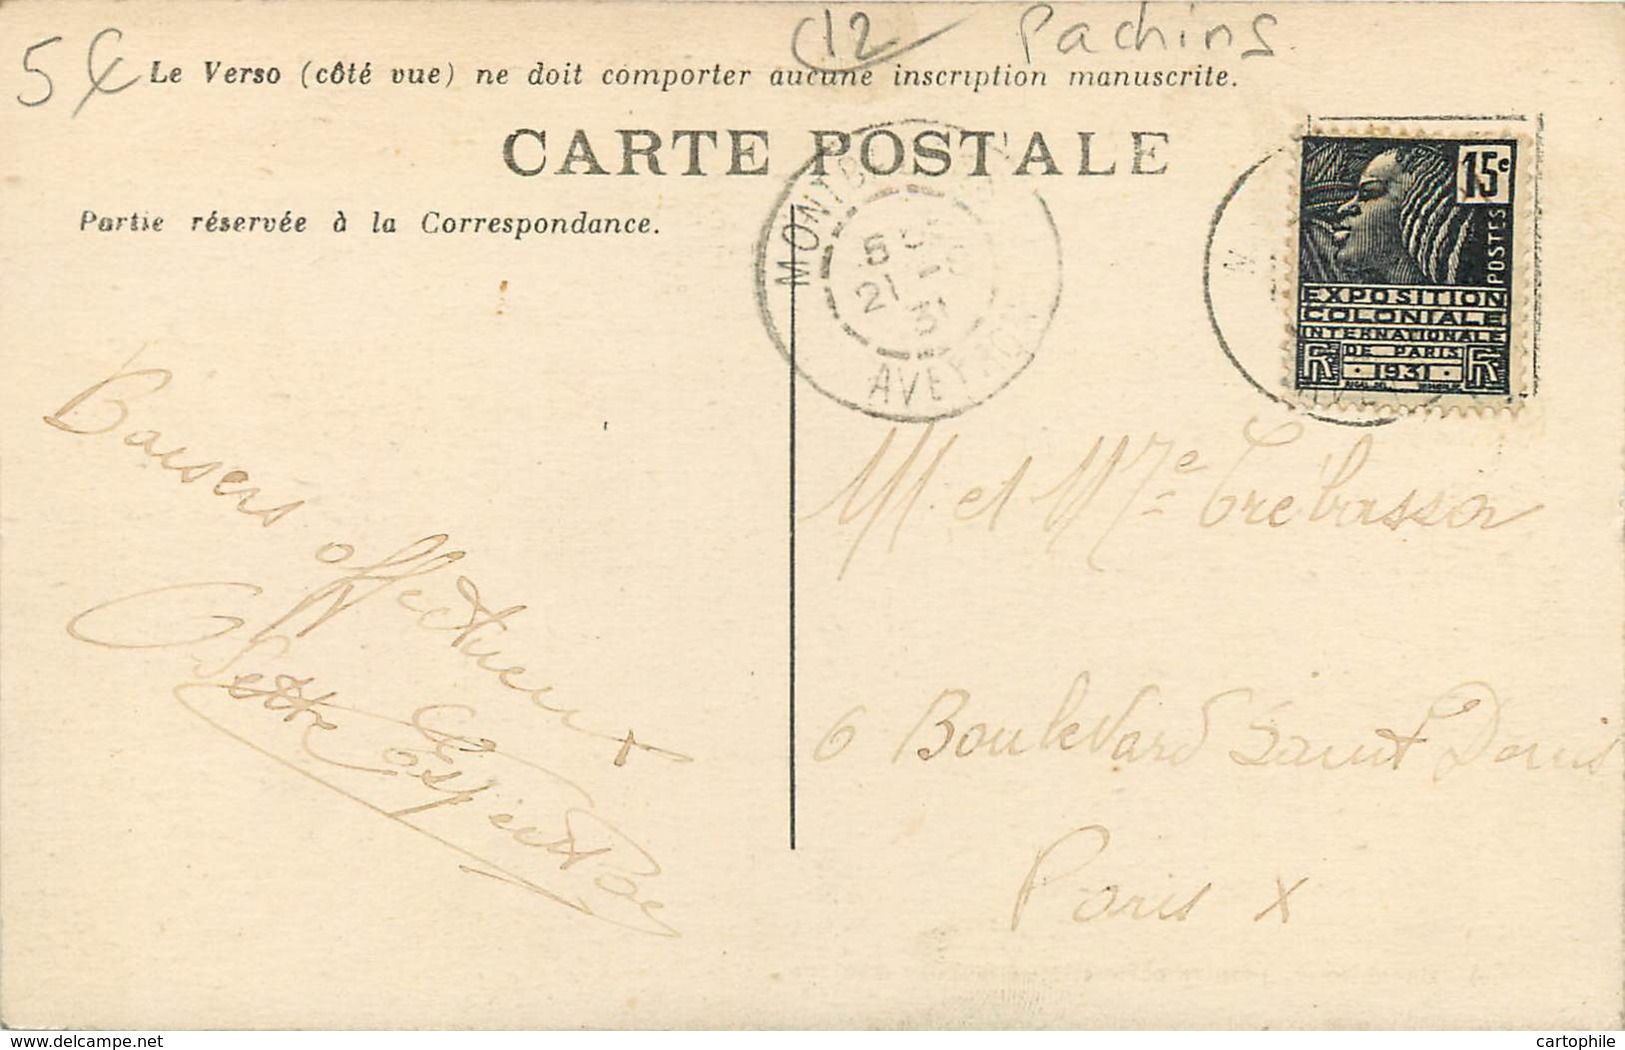 5€
12 Pachins
Le Verso (côté vue) ne doit comporter aucune inscription manuscrite.
CARTE POSTALE
Partie réservée à la Correspondance.
AVEYRON
21
31
15c
POSTES
EXPOSITION
COLONIALE
INTERNATIONALE
DE PARIS
1931
RF RF
Baisers affectueux
Odette
M. et Mme Trébosson
6 Boulevard Saint Denis
Paris X
delcampe.net
cartophile